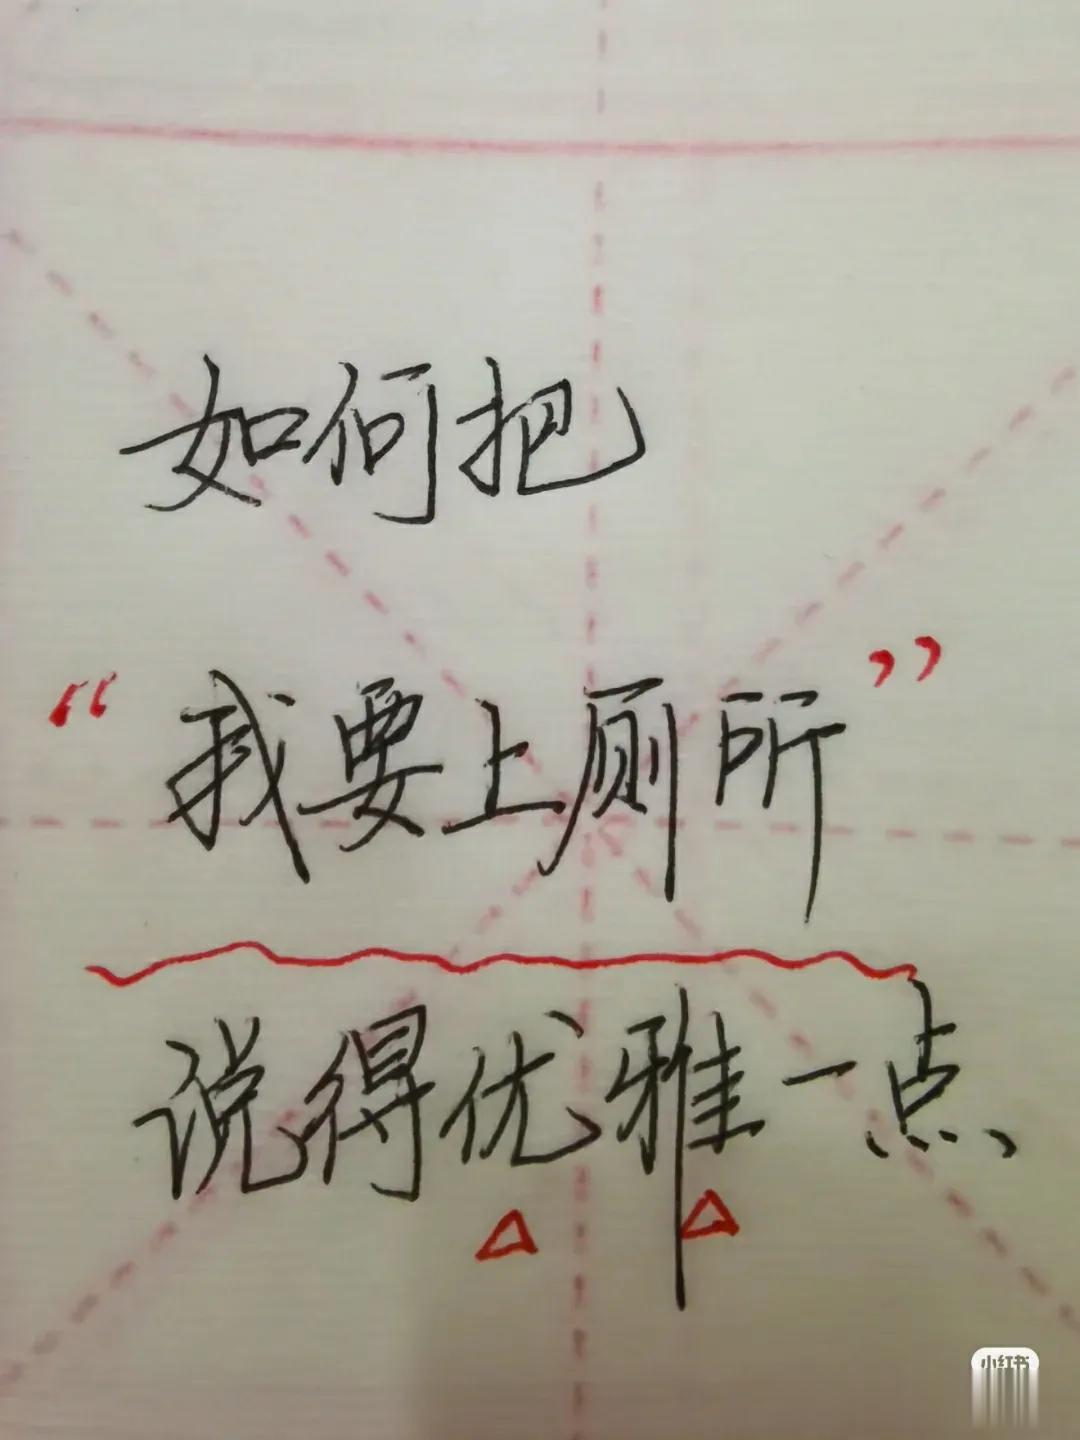 如何把
“我要上厕所”
说得优雅一点
小红书